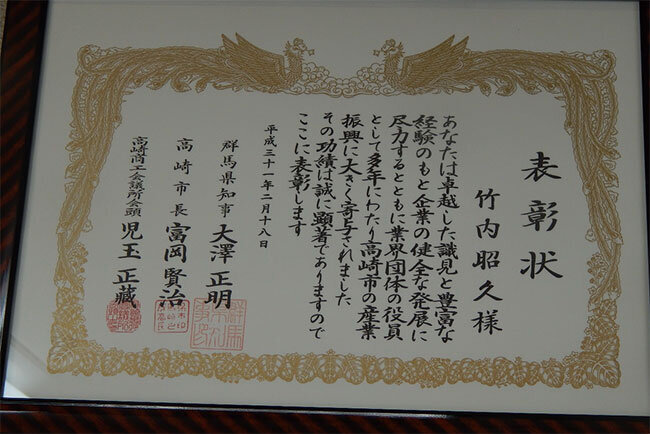 表彰状
竹内昭久様
あなたは卓越した識見と豊富な
経験のもと企業の健全な発展に
尽力するとともに業界団体の役員
として多年にわたり高崎市の産業
振興に大きく寄与されました
その功績は誠に顕著でありますので
ここに表彰します
平成三十一年二月十八日
群馬県知事 大澤正明
高崎市長 富岡賢治
高崎商工会議所会頭 児玉正藏